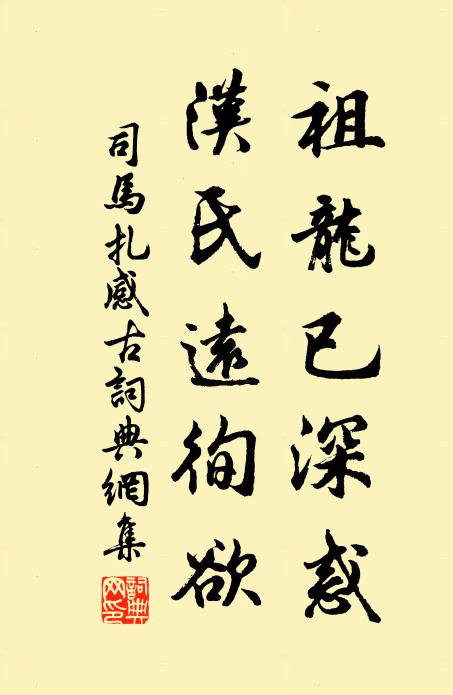 祖龍已深惑
漢氏遠徇欲
司馬扎感古詞典網集
詞典網印